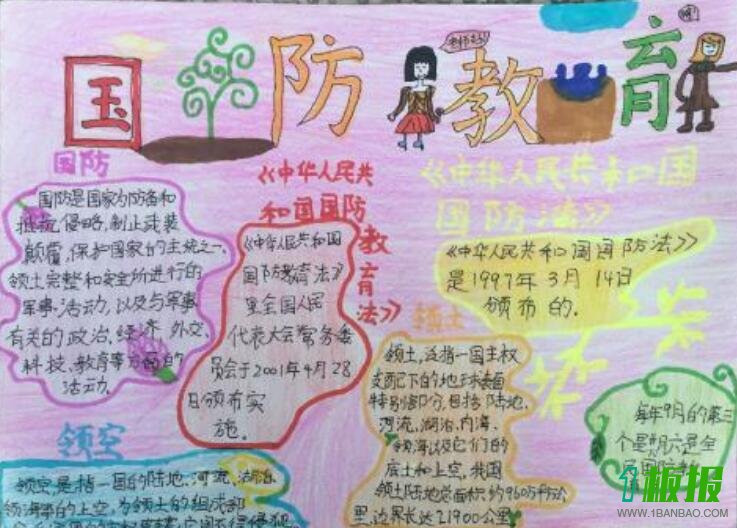 国防教育
老师好
国防
国防是国家为防备和
抵抗侵略,制止武装
颠覆,保护国家的主统之一
领土完整和安全所进行的
军事活动,以及与军事
有关的政治、经济、外交、
科技、教育等方面的
活动.
《中华人民共
和国国防
教育法》
《中华人民共和国
国防教育法》
里全国人民
代表大会常务委
员会于2001年4月28
日颁布实
施。
《中华人民共和国
国防法》
《中华人民共和国国防法》
是1997年3月14日
颁布的.
领土
领土,泛指一国主权
支配下的地球表面
特别部分,包括陆地、
河流、湖泊、内海、
领海以及它们的
底土和上空,我国
领土陆地总面积约960万平方公
里,边界长达21900公里
每年9月的第三
个星期六是全
领空
领空,是指一国的陆地、河流、湖泊、
领海等的上空,为领土的组成部
板报
WWW.1BANBAO.COM